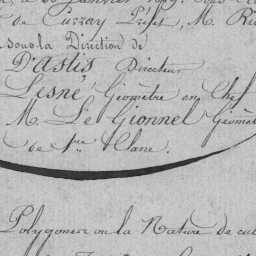 de Cussay Préfet, M. Ri
sous la Direction de
D'Astis Directeur
Lesné, Géomètre en Chef
M. Le Gionnel Géomèt
de 1re Classe.
Polygones ou la Nature de cul